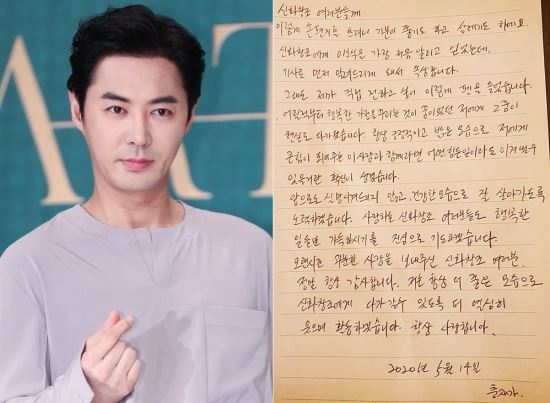 MATE
신화창조 여러분들께
이렇게 손편지를 쓰려니 기분이 좋기도 하고 설레기도 하네요
신화창조에게 이소식을 가장 처음 알리고 싶었는데,
기사로 먼저 알려드리게 돼서 속상합니다.
그래도 제가 직접 전하고 싶어 이렇게 펜을 들었습니다.
어릴적부터 행복한 가정을 꾸리는 것이 꿈이었던 저에게 그 꿈이
현실로 다가왔습니다. 항상 긍정적이고 밝은 모습으로 저에게
큰힘이 되어주는 이 사람과 함께라면 어떤 힘든일이라도 이겨낼수
있을거란 확신이 생겼습니다.
앞으로도 실망시켜드리지 않고, 건강한모습으로 잘 살아가도록
노력하겠습니다. 사랑하는 신화창조 여러분들도 행복한
일들만 가득하시기를 진심으로 기도하겠습니다.
오랜시간 과분한 사랑을 보내주신 신화창조 여러분,
정말 항상 감사합니다. 저도 항상 더 좋은 모습으로
신화창조에게 다가갈수 있도록 더 열심히
웃으며 활동하겠습니다. 항상 사랑합니다.
2020년 5월 14일
충재가.